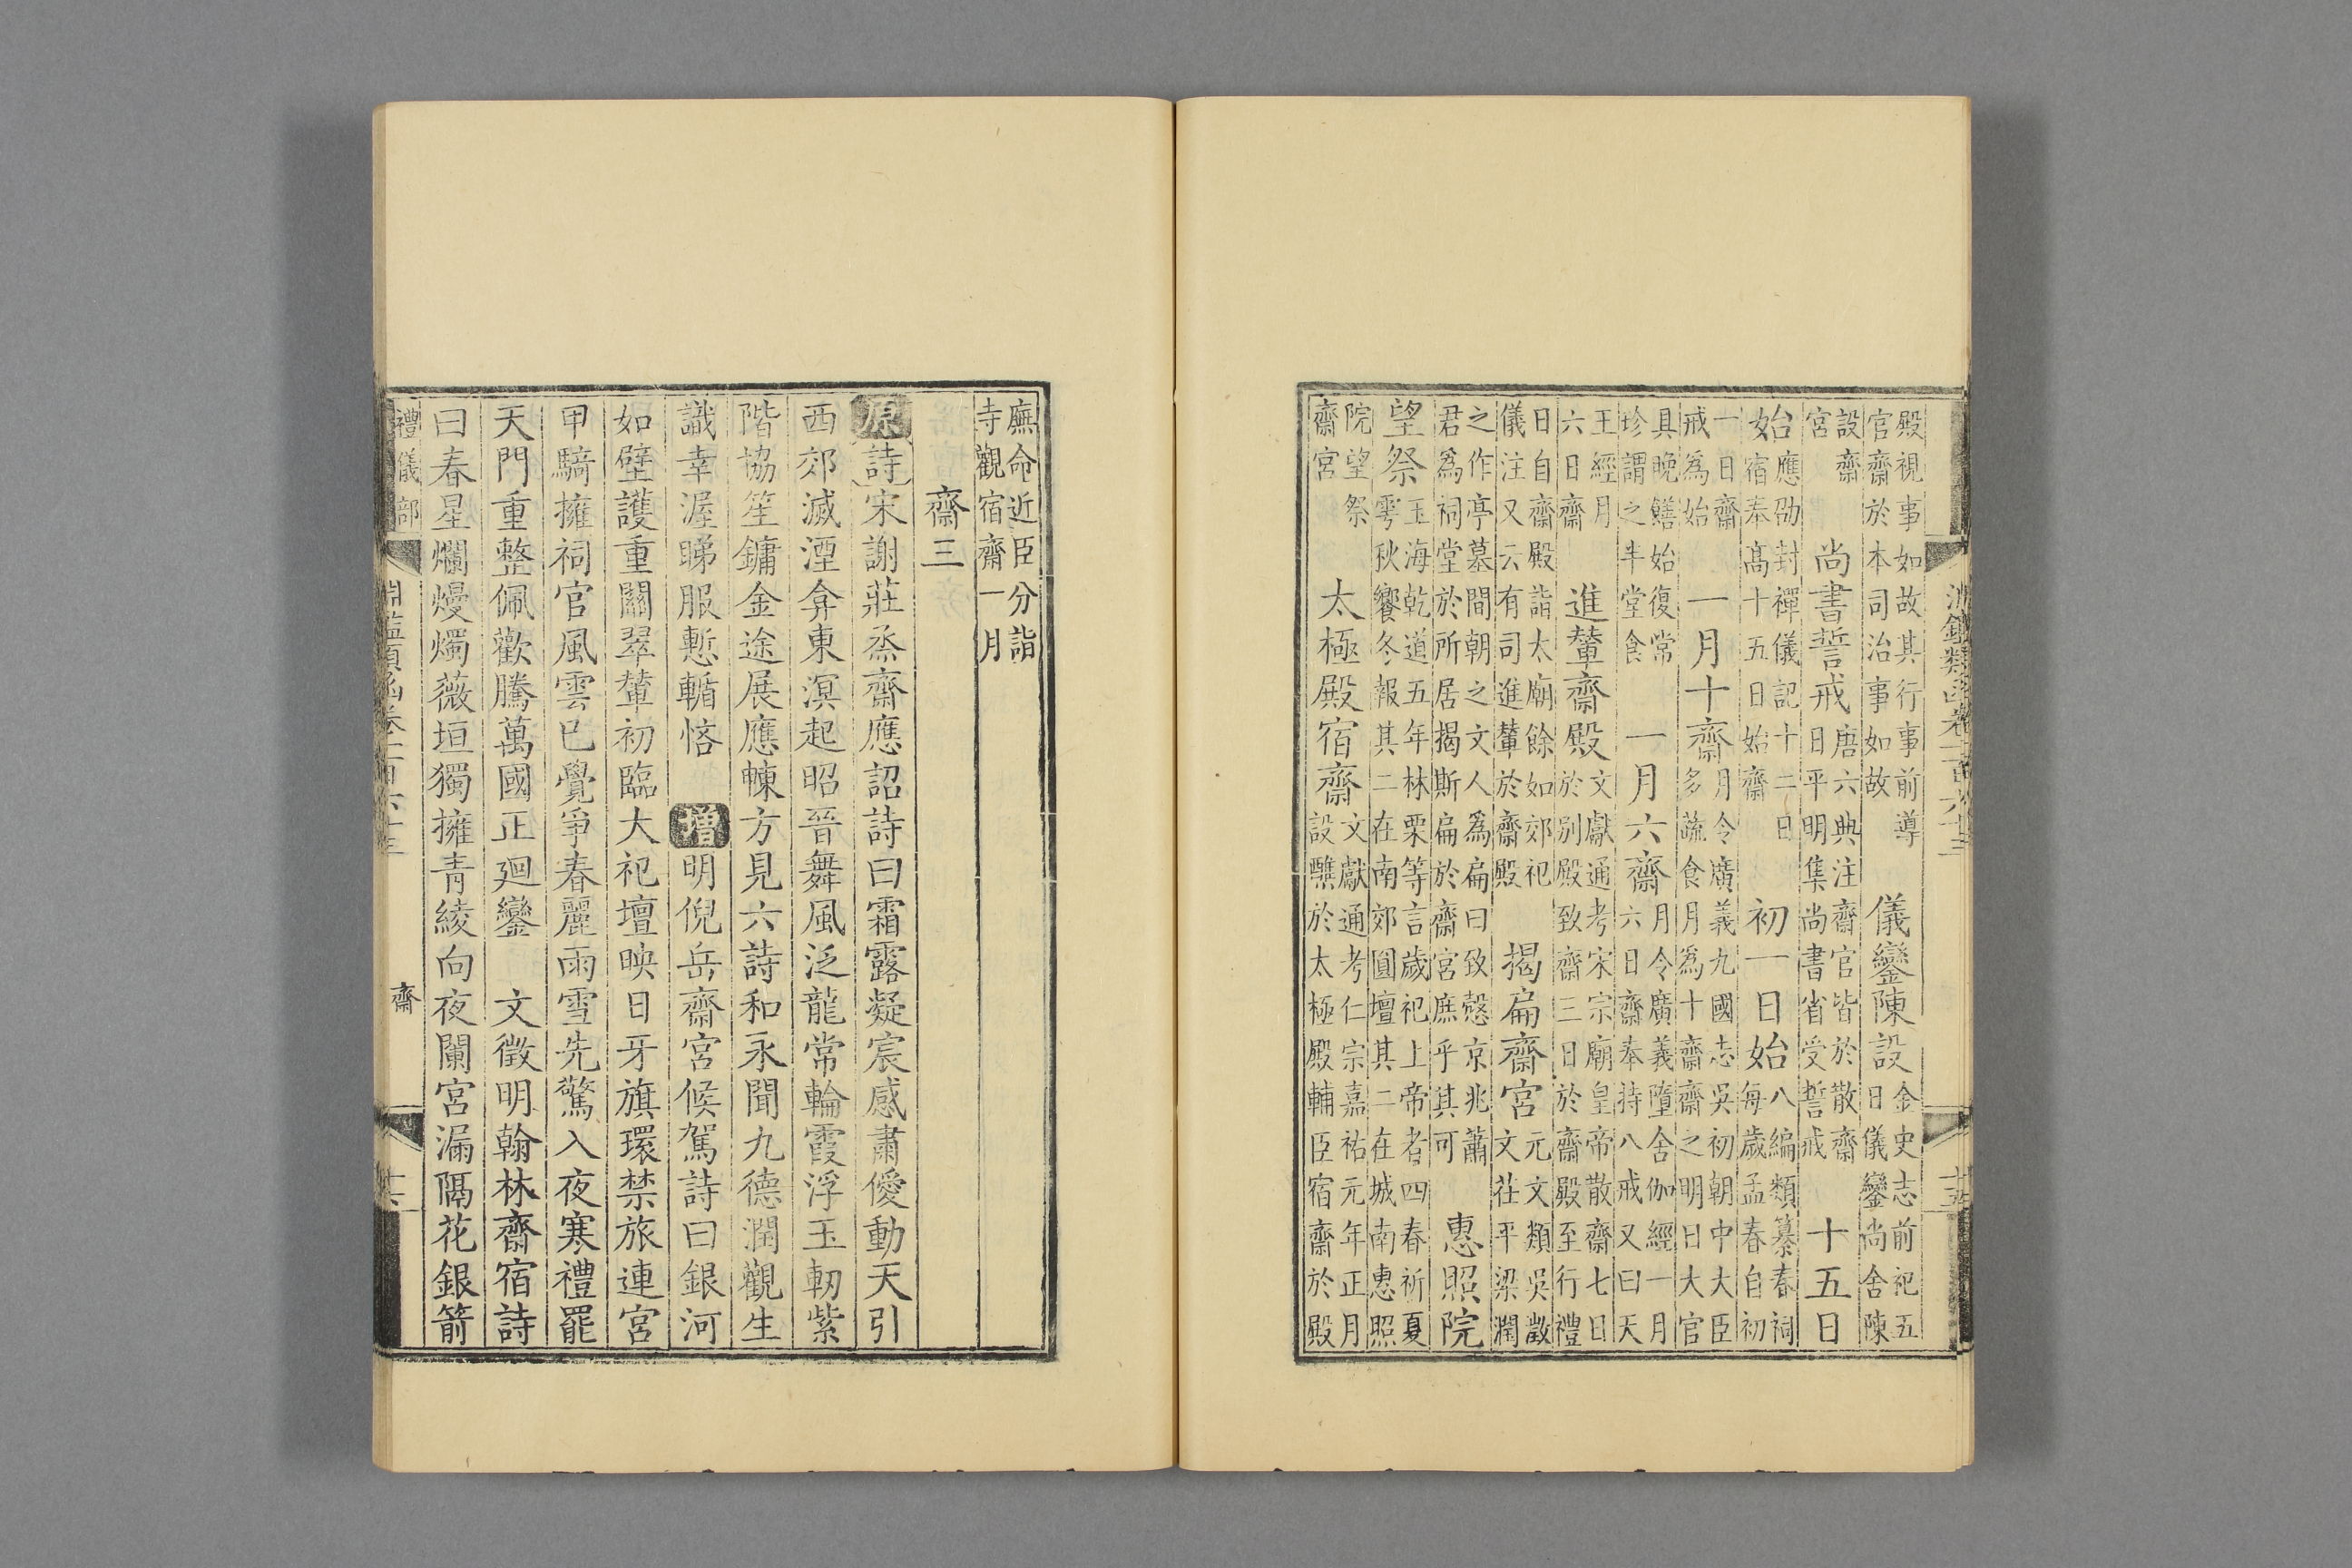 淵鑑類函卷一百六十三
十五
殿視事如故其行事前導
官齋於本司治事如故
儀鑾陳設
金史志前祀五
日儀鑾尚舍陳
設齋
宮
尚書誓戒
唐六典注齋官皆於散齋
日平明集尚書省受誓戒
十五日
始
應劭封禪儀記十二日
宿奉高十五日始齋
初一日始
八編類纂春祠
每歲孟春自初
一日齋
戒為始
一月十齋
月令廣義九國志吳初朝中大臣
多蔬食月為十齋齋之明日大官
具晚鱔始復常
珍謂之半堂食
一月六齋
月令廣義隨舍伽經一月
六日齋奉持八戒又曰天
王經月
六日齋
進輦齋殿
文獻通考宋宗廟皇帝散齋七日
於別殿致齋三日於齋殿至行禮
日自齋殿詣太廟餘如郊祀
儀注又云有司進輦於齋殿
揭扁齋宮
元文類吳澂
文在平梁潤
之作亭墓間朝之文人為扁曰致慤京兆蕭
君為祠堂於所居揭斯扁於齋宮庶乎其可
惠照院
望祭
玉海乾道五年林栗等言歲祀上帝者四春祈夏
雩秋饗冬報其二在南郊圓壇其二在城南惠照
院望祭
齋宮
太極殿宿齋
文獻通考仁宗嘉祐元年正月
設醮於太極殿輔臣宿齋於殿
廡命近臣分詣
寺觀宿齋一月
齋三
原詩宋謝莊烝齋應詔詩曰霜露凝宸感肅僾動天引
西郊滅湮弇東溟起昭晉舞風泛龍常輪霞浮玉軔紫
階協笙鏞金途展應朄方見六詩和永聞九德潤觀生
識幸渥睇服慙輴悋
增明倪岳齋宮候駕詩曰銀河
如壁護重關翠輦初臨大祀壇映日牙旗環禁旅連宮
甲騎擁祠官風雲已覺爭春麗雨雪先驚入夜寒禮罷
天門重整佩歡騰萬國正迴鑾
文徵明翰林齋宿詩
曰春星爛熳燭薇垣獨擁青綾向夜闌宮漏隔花銀箭
禮儀部
淵鑑類函卷一百六十三
齋
十六